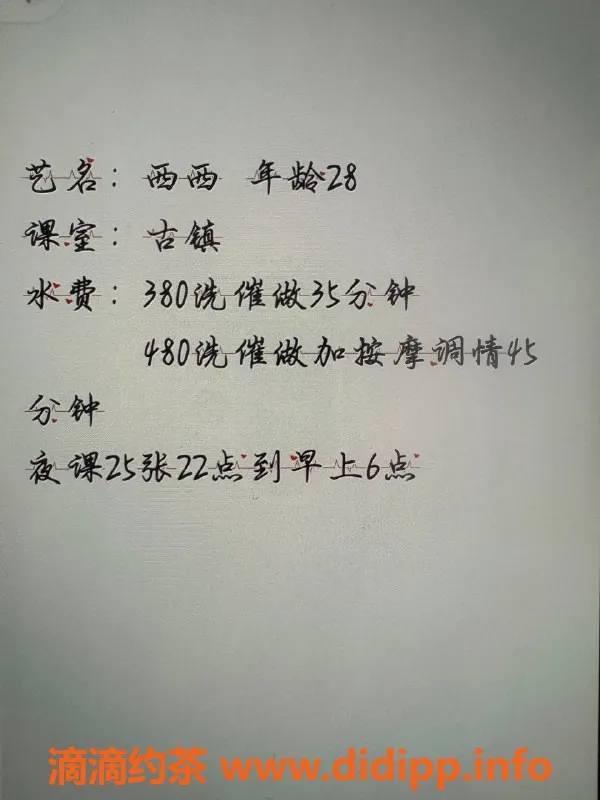 艺名：西西 年龄28
课室：古镇
水费：380洗催做35分钟
480洗催做加按摩调情45
分钟
夜课25张22点到早上6点
滴滴约茶 www.didipp.info